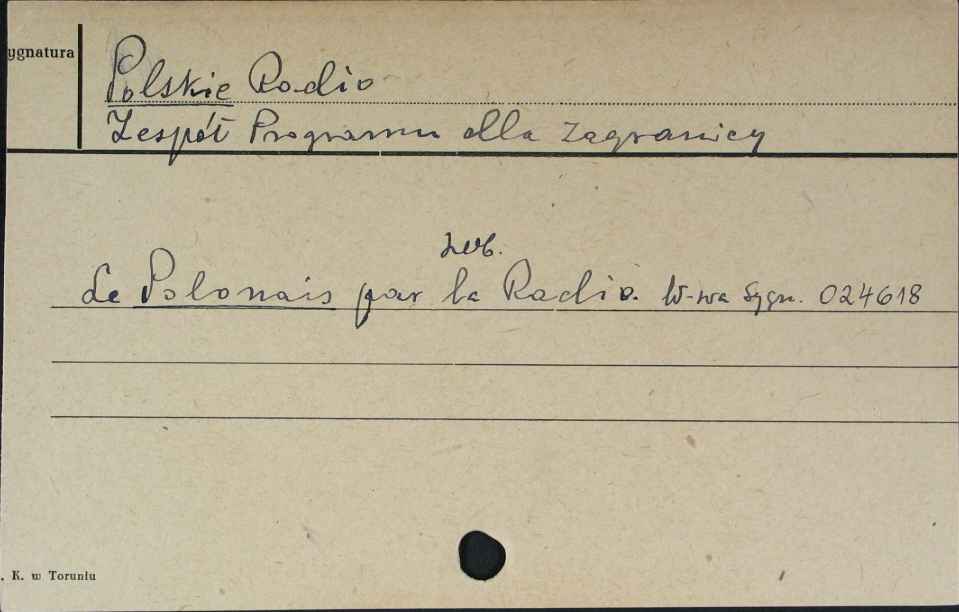 ygnatura
Polskie Radio
Zespół Programu dla Zagranicy
zob.
Le Polonais par la Radio. W-wa Sygn. 024618
. K. w Toruniu